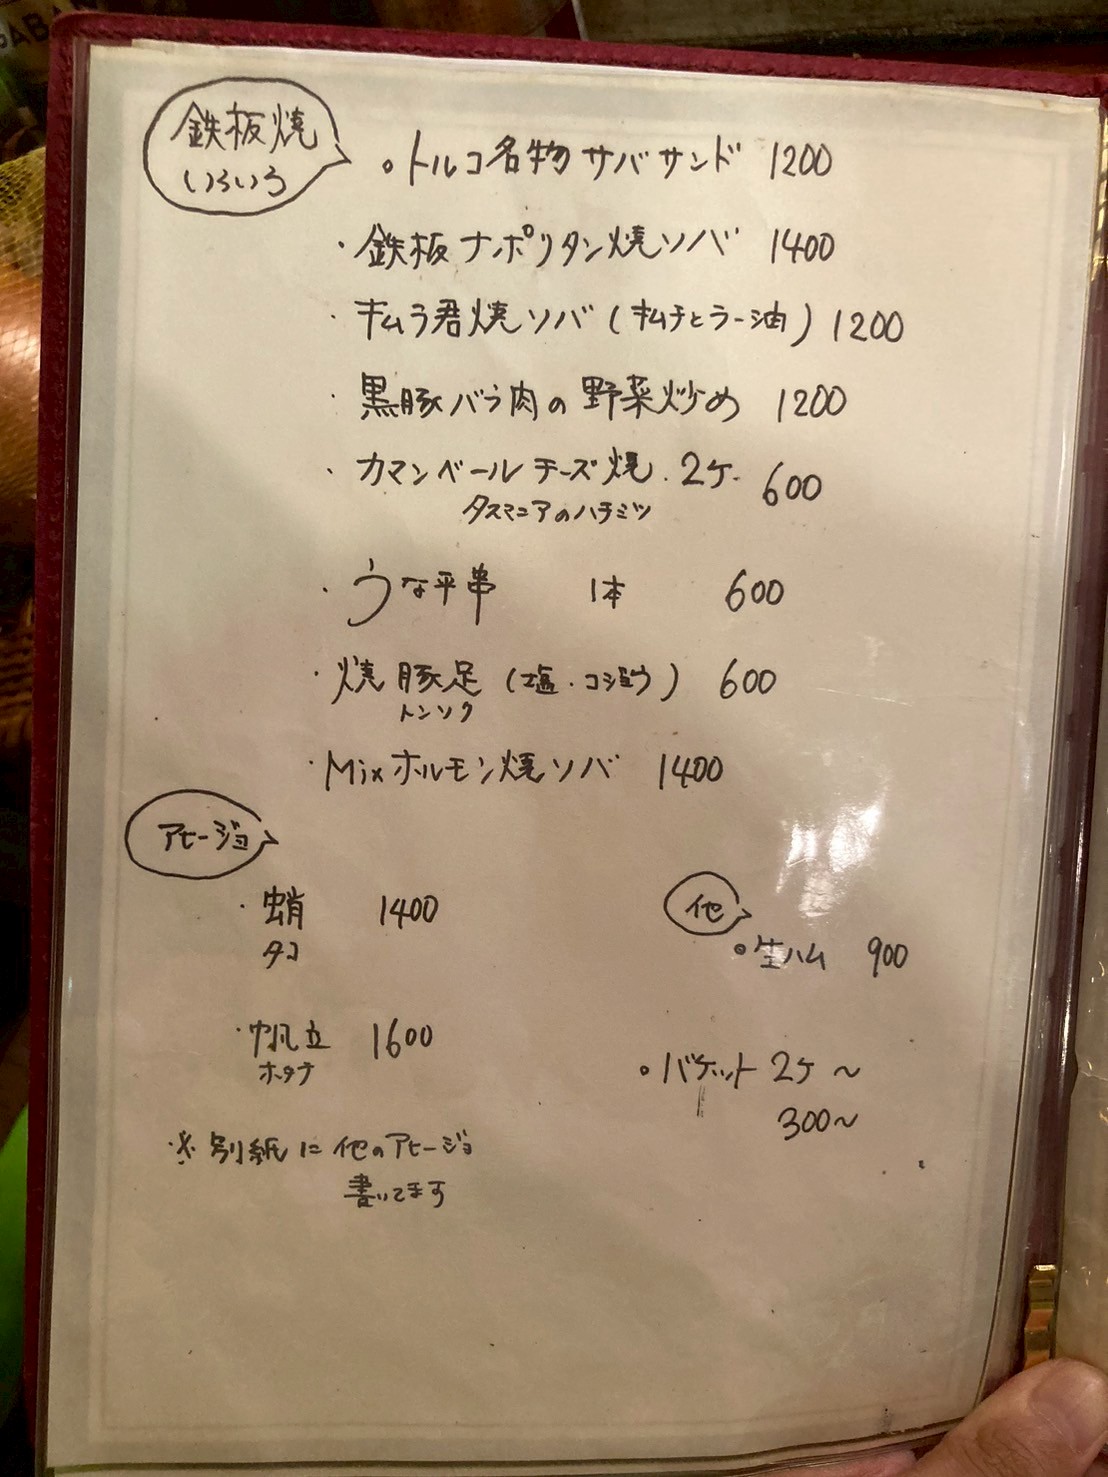 鉄板焼
いろいろ
トルコ名物サバサンド 1200
・鉄板ナポリタン焼ソバ 1400
・キムラ君焼ソバ(キムチとラー油) 1200
・黒豚バラ肉の野菜炒め 1200
・カマンベールチーズ焼.2ケ. 600
タスマニアのハチミツ
・うな平串 1本 600
・焼豚足(塩・コショウ) 600
トンソク
・Mixホルモン焼ソバ 1400
アヒージョ
・蛸 1400
タコ
・帆立 1600
ホタテ
※別紙に他のアヒージョ
書いてます
他
生ハム 900
バケット 2ケ〜
300〜